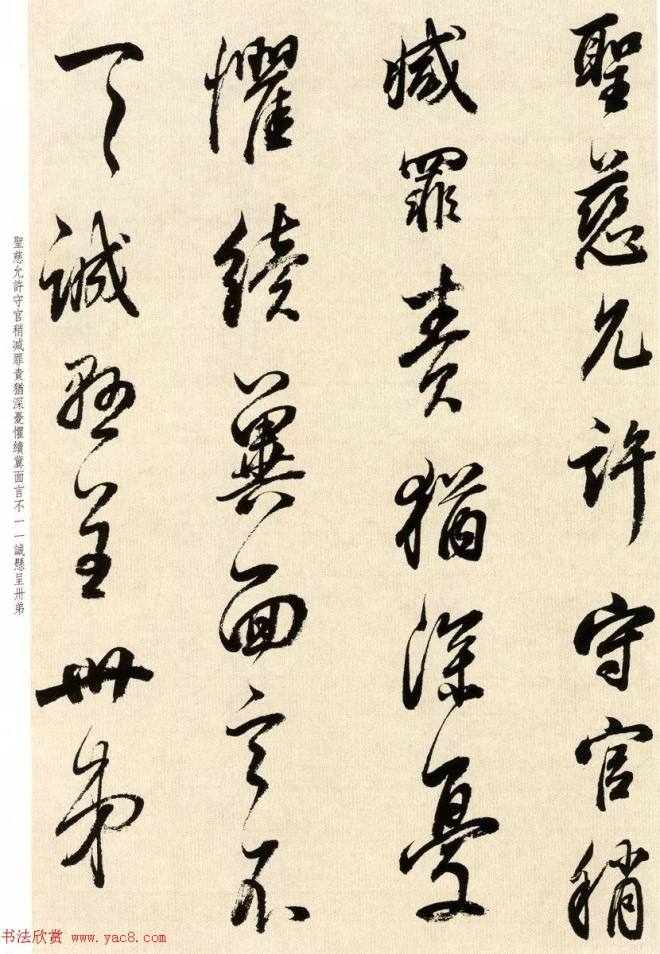 聖慈允許守官稍
減罪責猶深憂
懼續冀面言不
一一誠懸呈卅弟
聖慈允許守官稍减罪責猶深憂懼續冀面言不一一誠懸呈卅弟
书法欣赏 www.yac8.com